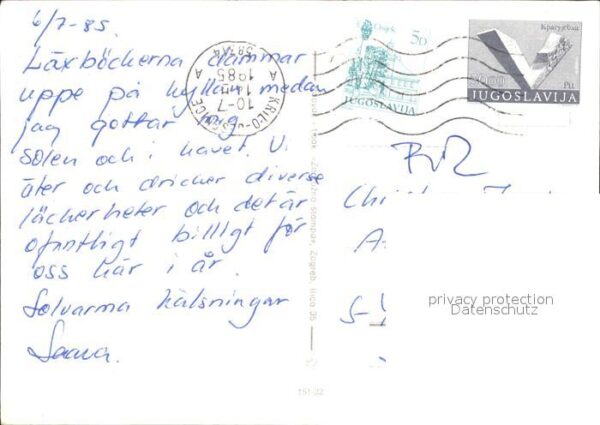 6/7-85.
Läxböckerna dammar
uppe på hyllan medan
jag gottar mig
solen och i havet. Vi
äter och dricker diverse
läckerheter och det är
ofantligt billigt för
oss här i år.
Solvarma hälsningar
50
JUGOSLAVIJA
Крагујевац
10.00 Din
JUGOSLAVIJA
KRILO-JESENICE
10-7
1985
58314
A A
S-
privacy protection
Datenschutz
Zagreb, Ilica 35
151-22